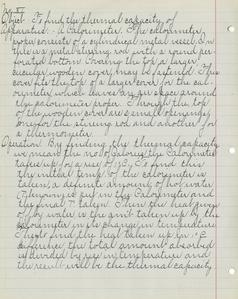 Object. To find the thermal capacity of
Apparatus - a calorimeter. The calorimeter
proper consists of a cylindrical metal vessel. In
this is a metal stirring rod with a round per-
forated bottom. Around the top a larger
circular wooden cover may be fastened. This
cover fits the top of a larger cover for the cal-
orimeter which leaves an air space around
the calorimeter proper. Through the top
of the wooden cover are small openings
one for the stirring rod and another for
a thermometer.
Operation. By finding the thermal capacity
we mean the no. of calories the calorimeter
takes up for a rise of 1°. To find this
the initial temp of the calorimeter is
taken, a definite amount of hot water
T known is put in the calorimeter and
the final T taken. Then the heat given
off by water is the amt taken up by the
calorimeter in its change in temperature
divided by rise in temperature and
the result will be the thermal capacity